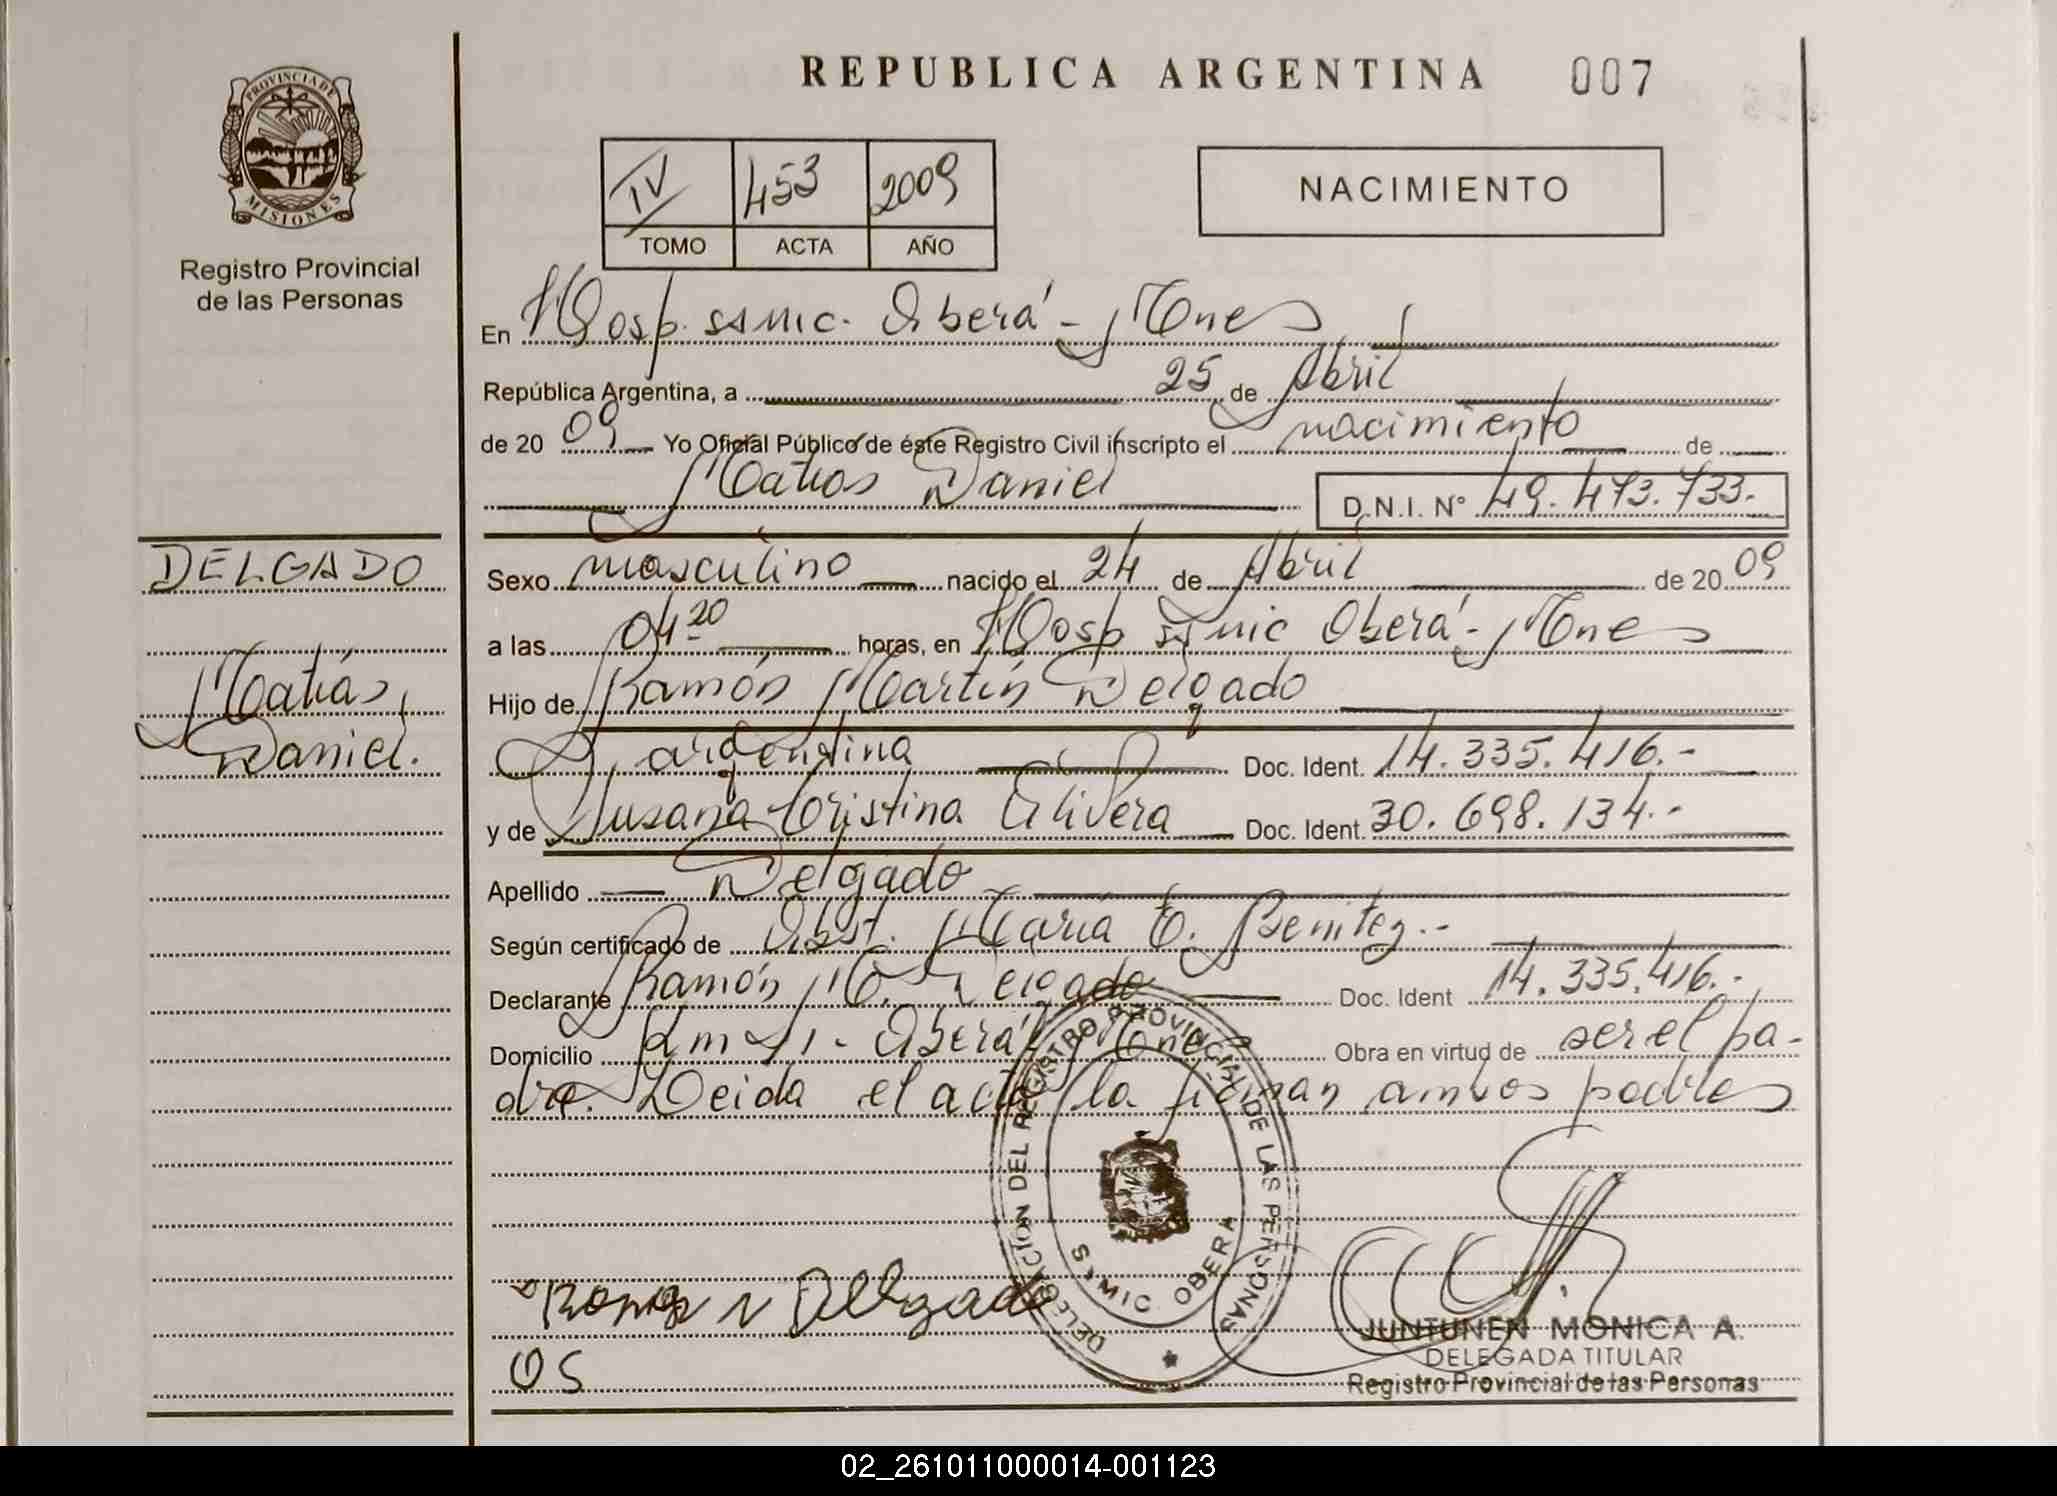 REPUBLICA ARGENTINA 007
PROVINCIA DE
MISIONES
Registro Provincial
de las Personas
IV 453 2009
TOMO ACTA AÑO
NACIMIENTO
En Hosp. samic. Oberá - Mnes
República Argentina, a 25 de Abril
de 2009 Yo Oficial Público de éste Registro Civil inscripto el nacimiento de
Matías Daniel D.N.I. Nº 49.473.733.-
DELGADO
Matías
Daniel.
Sexo masculino nacido el 24 de Abril de 2009
a las 04 20 horas, en Hosp Samic Oberá - Mnes
Hijo de Ramón Martín Delgado
argentina Doc. Ident. 14.335.416.-
y de Susana Cristina Olivera Doc. Ident. 30.698.134.-
Apellido Delgado
Según certificado de Obst. María E. Benitez.-
Declarante Ramón M. Delgado Doc. Ident 14.335.416.-
Domicilio Km - Oberá Mnes Obra en virtud de ser el pa-
dre. Leida el acta la firman ambos padres
DELEGACION DEL REGISTRO PROVINCIAL DE LAS PERSONAS
SAMIC OBERA
Delgado
OS
JUNTUNEN MONICA A.
DELEGADA TITULAR
Registro Provincial de las Personas
02_261011000014-001123